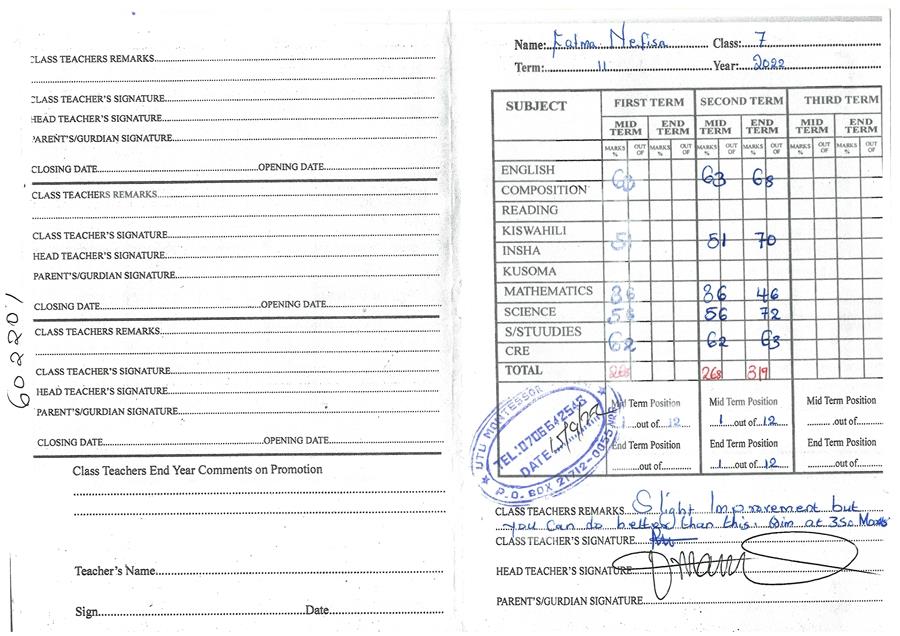 CLASS TEACHERS REMARKS
CLASS TEACHER'S SIGNATURE
HEAD TEACHER'S SIGNATURE
PARENT'S/GURDIAN SIGNATURE
CLOSING DATE OPENING DATE
CLASS TEACHERS REMARKS
CLASS TEACHER'S SIGNATURE
HEAD TEACHER'S SIGNATURE
PARENT'S/GURDIAN SIGNATURE
CLOSING DATE OPENING DATE
CLASS TEACHERS REMARKS
CLASS TEACHER'S SIGNATURE
HEAD TEACHER'S SIGNATURE
PARENT'S/GURDIAN SIGNATURE
CLOSING DATE OPENING DATE
Class Teachers End Year Comments on Promotion
Teacher's Name
Sign Date
602201
Name: Fatma Nefisa Class: 7
Term: 11 Year: 2022
SUBJECT FIRST TERM SECOND TERM THIRD TERM
MID TERM END TERM MID TERM END TERM MID TERM END TERM
MARKS % OUT OF MARKS % OUT OF MARKS % OUT OF MARKS % OUT OF MARKS % OUT OF MARKS % OUT OF
ENGLISH 63 63 68
COMPOSITION
READING
KISWAHILI 51 51 70
INSHA
KUSOMA
MATHEMATICS 36 36 46
SCIENCE 56 56 72
S/STUUDIES 62 62 63
CRE
TOTAL 268 268 319
Mid Term Position Mid Term Position Mid Term Position
1 out of 12 1 out of 12 out of
End Term Position End Term Position End Term Position
out of 1 out of 12 out of
UTU MONTESSOR
TEL: 0706642546
DATE 15/9/22
P.O. BOX 21712-00
CLASS TEACHERS REMARKS Slight Improvement but
you can do better than this. Aim at 350 Marks
CLASS TEACHER'S SIGNATURE
HEAD TEACHER'S SIGNATURE
PARENT'S/GURDIAN SIGNATURE